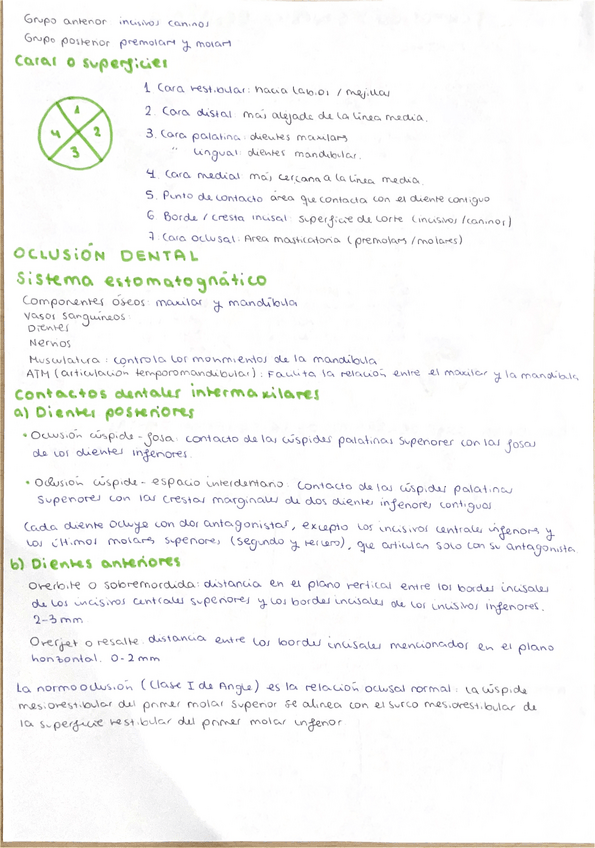 Grupo anterior incisivos caninos
Grupo posterior premolars y molars
Caras o superficies
1 Cara vestibular: hacia labios / mejillas
2. Cara distal: más alejada de la línea media.
3. Cara palatina: dientes maxilars
" lingual: dientes mandibular.
4. Cara medial más cercana a la línea media.
5. Punto de contacto área que contacta con el diente contiguo
6 Borde / cresta incisal: superficie de corte (incisivos / caninos)
7. Cara oclusal: Area masticatoria (premolars / molares)
1
2
3
4
OCLUSIÓN DENTAL
Sistema estomatognático
Componentes óseos: maxilar y mandíbula
Vasos sanguíneos
Dientes
Nervios
Musculatura: controla los movimientos de la mandíbula
ATM (articulación temporomandibular): Facilita la relación entre el maxilar y la mandíbula
Contactos dentales intermaxilares
a) Dientes posteriores
• Oclusión cúspide - fosa: contacto de las cúspides palatinas superiores con las fosas
de los dientes inferiores.
• Oclusión cúspide - espacio interdentario: contacto de las cúspides palatinas
superiores con las crestas marginales de dos dientes inferiores contiguos
Cada diente ocluye con dos antagonistas, excepto los incisivos centrales inferiores y
los últimos molars superiores (segundo y tercero), que articulan solo con su antagonista.
b) Dientes anteriores
Overbite o sobremordida: distancia en el plano vertical entre los bordes incisales
de los incisivos centrales superiores y los bordes incisales de los incisivos inferiores.
2-3 mm
Overjet o resalte distancia entre los bordes incisales mencionados en el plano
horizontal. 0-2 mm
La normooclusión (Clase I de Angle) es la relación oclusal normal: la cúspide
mesiovestibular del primer molar superior se alinea con el surco mesiovestibular de
la superficie vestibular del primer molar inferior